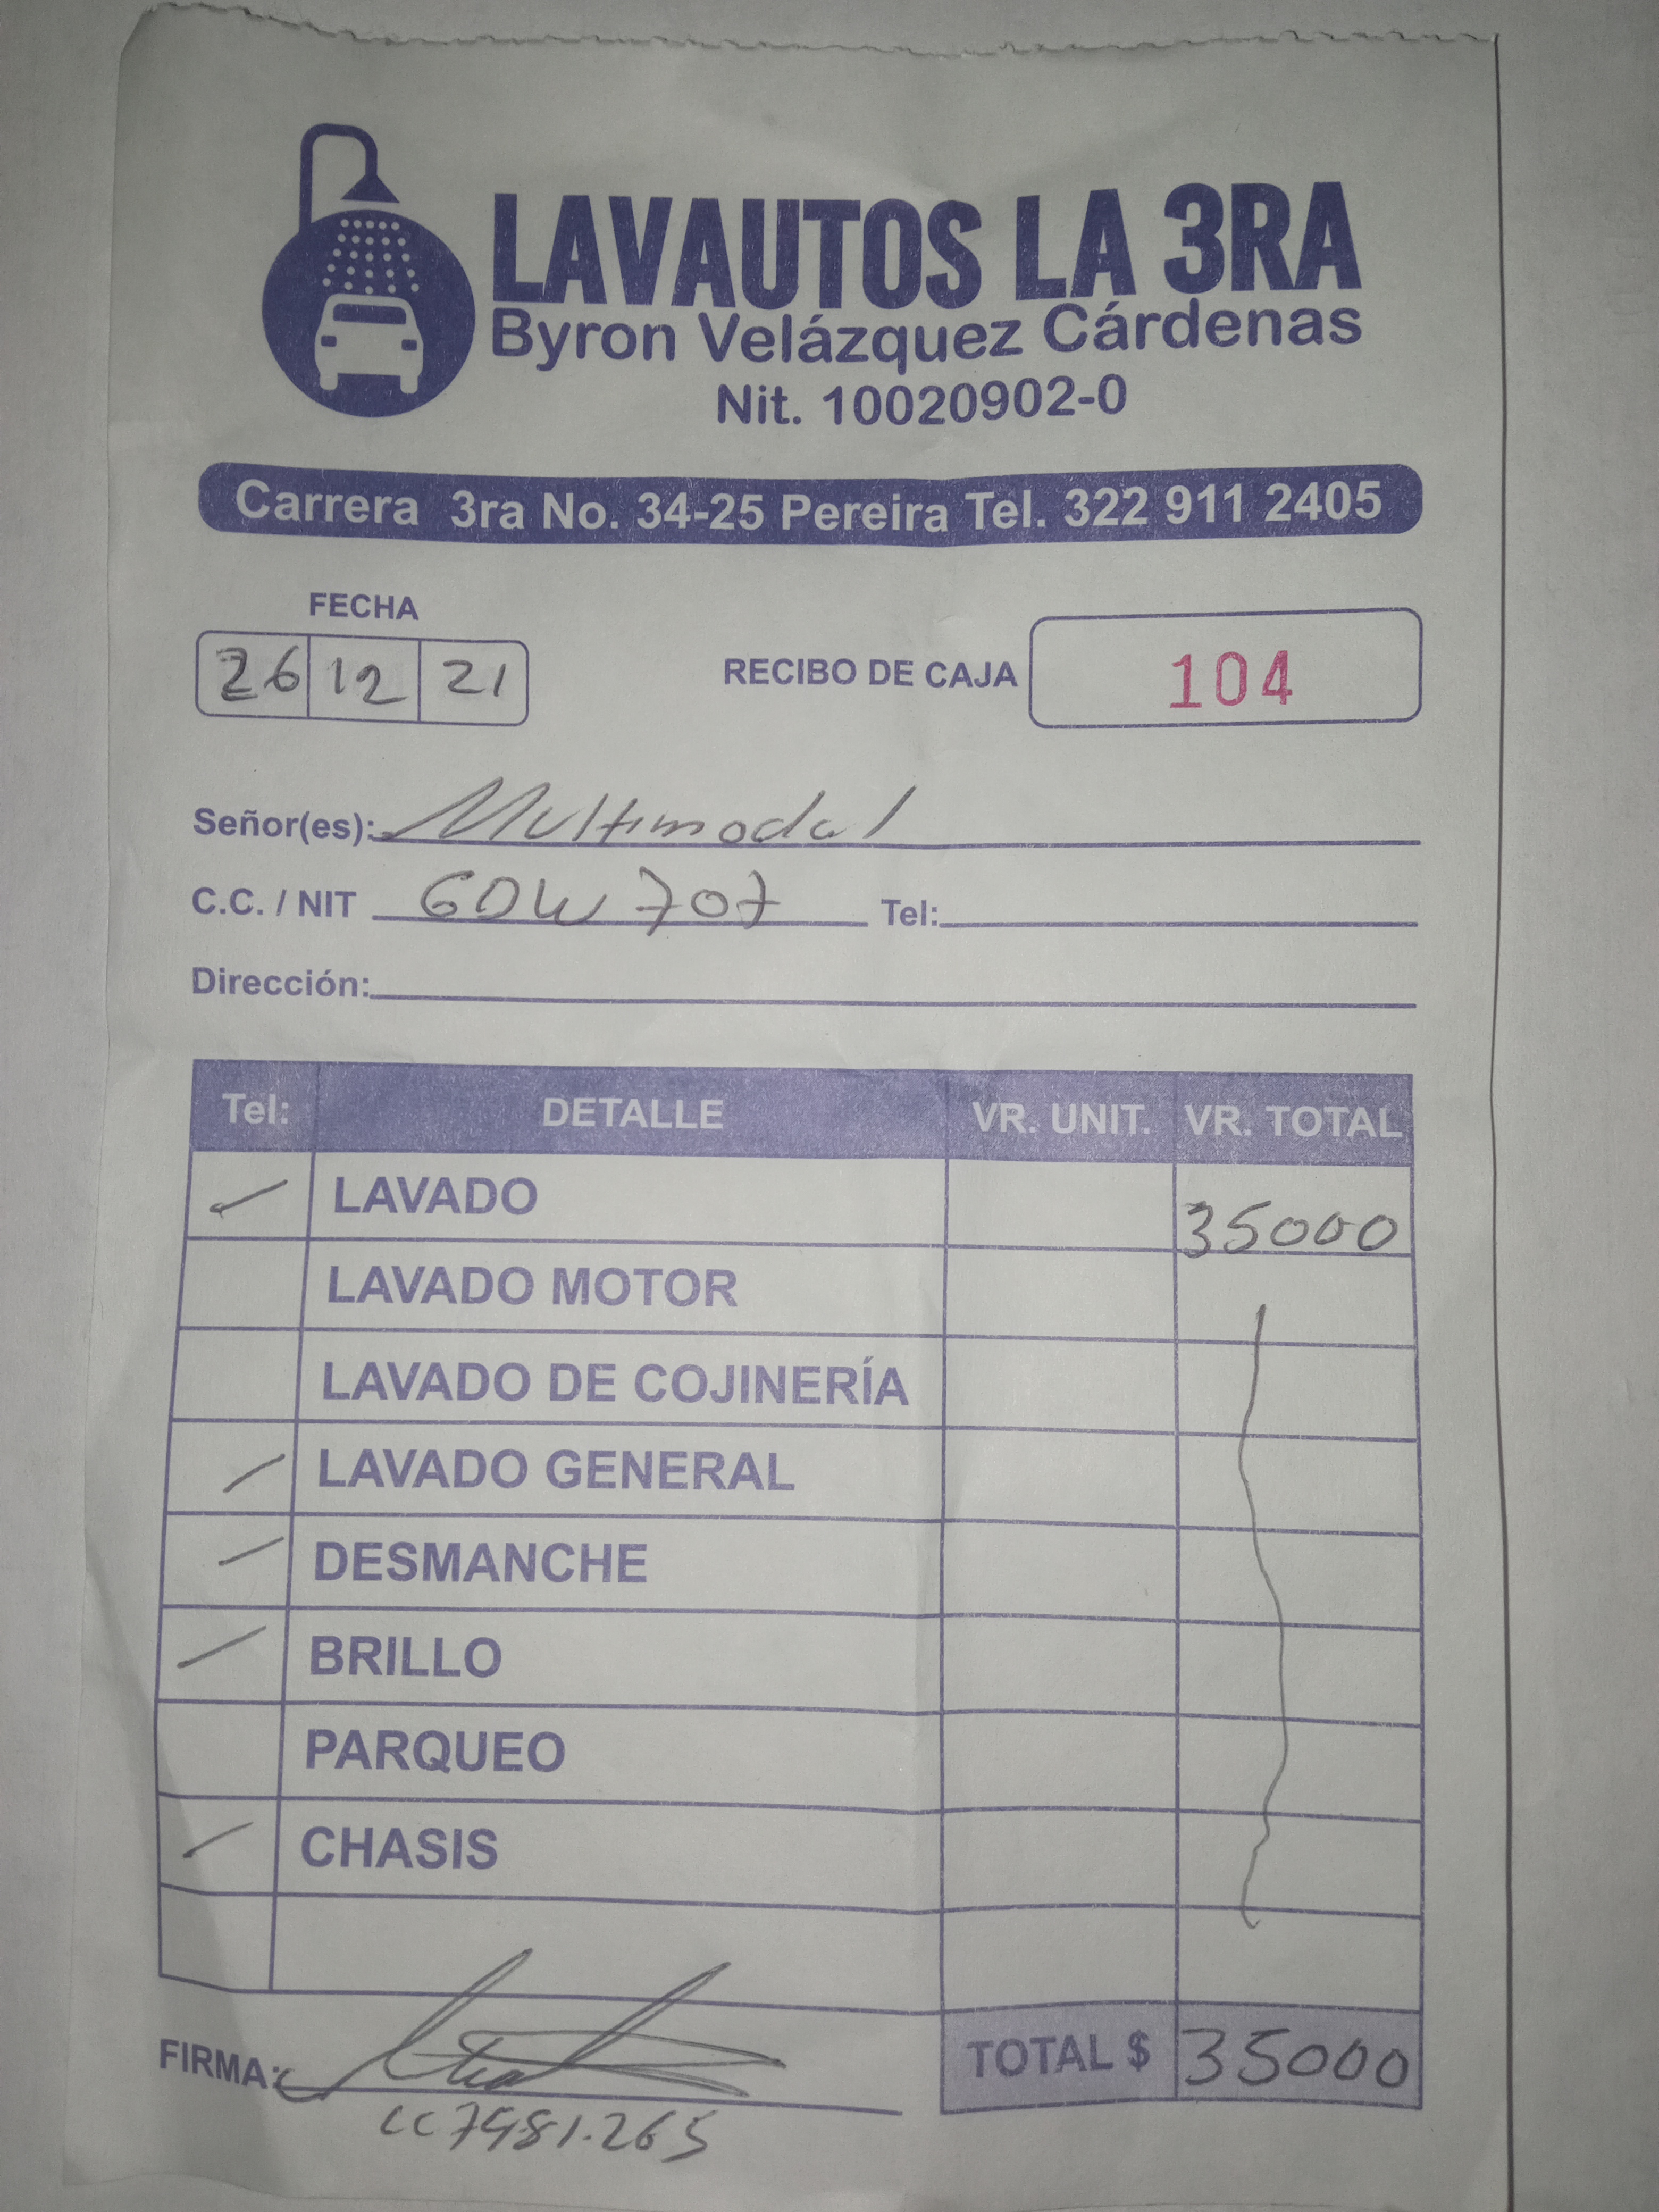 LAVAUTOS LA 3RA
Byron Velázquez Cárdenas
Nit. 10020902-0
Carrera 3ra No. 34-25 Pereira Tel. 322 911 2405
FECHA
26 12 21
RECIBO DE CAJA 104
Señor(es): Multimodal
C.C. / NIT GDW 707 Tel:
Dirección:
Tel: DETALLE VR. UNIT. VR. TOTAL
LAVADO 35000
LAVADO MOTOR
LAVADO DE COJINERÍA
LAVADO GENERAL
DESMANCHE
BRILLO
PARQUEO
CHASIS
TOTAL $ 35000
FIRMA: